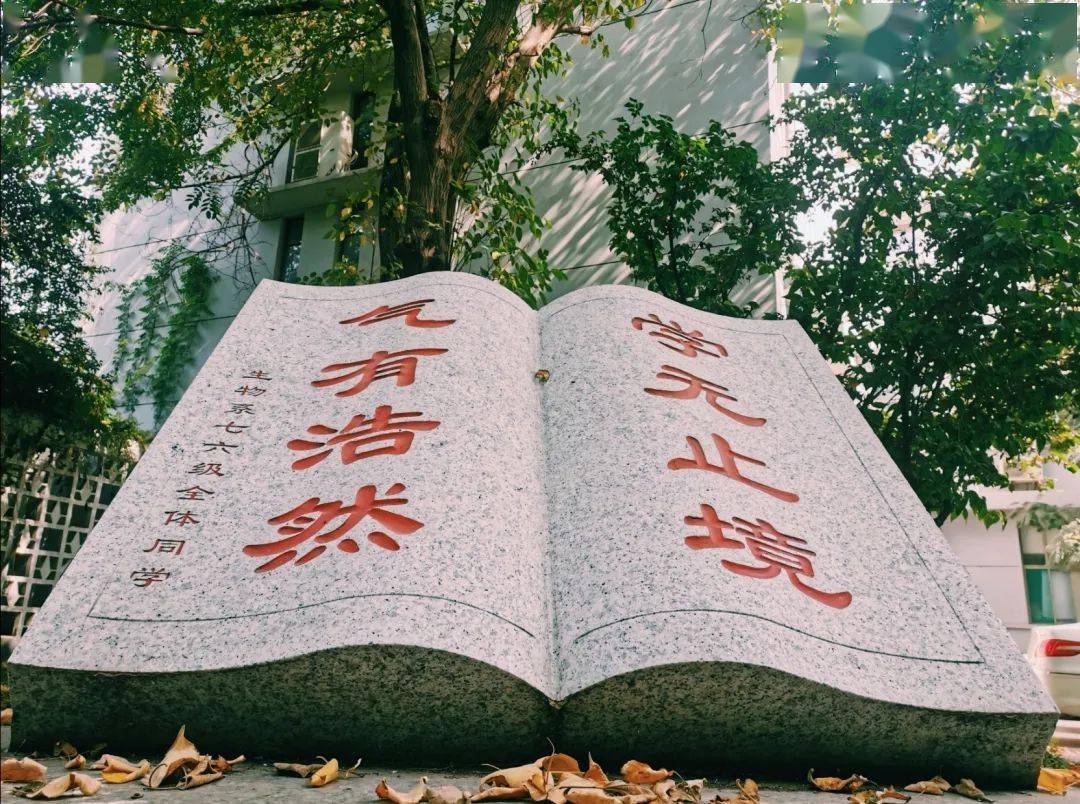 学无止境
气有浩然
生物系七六级全体同学